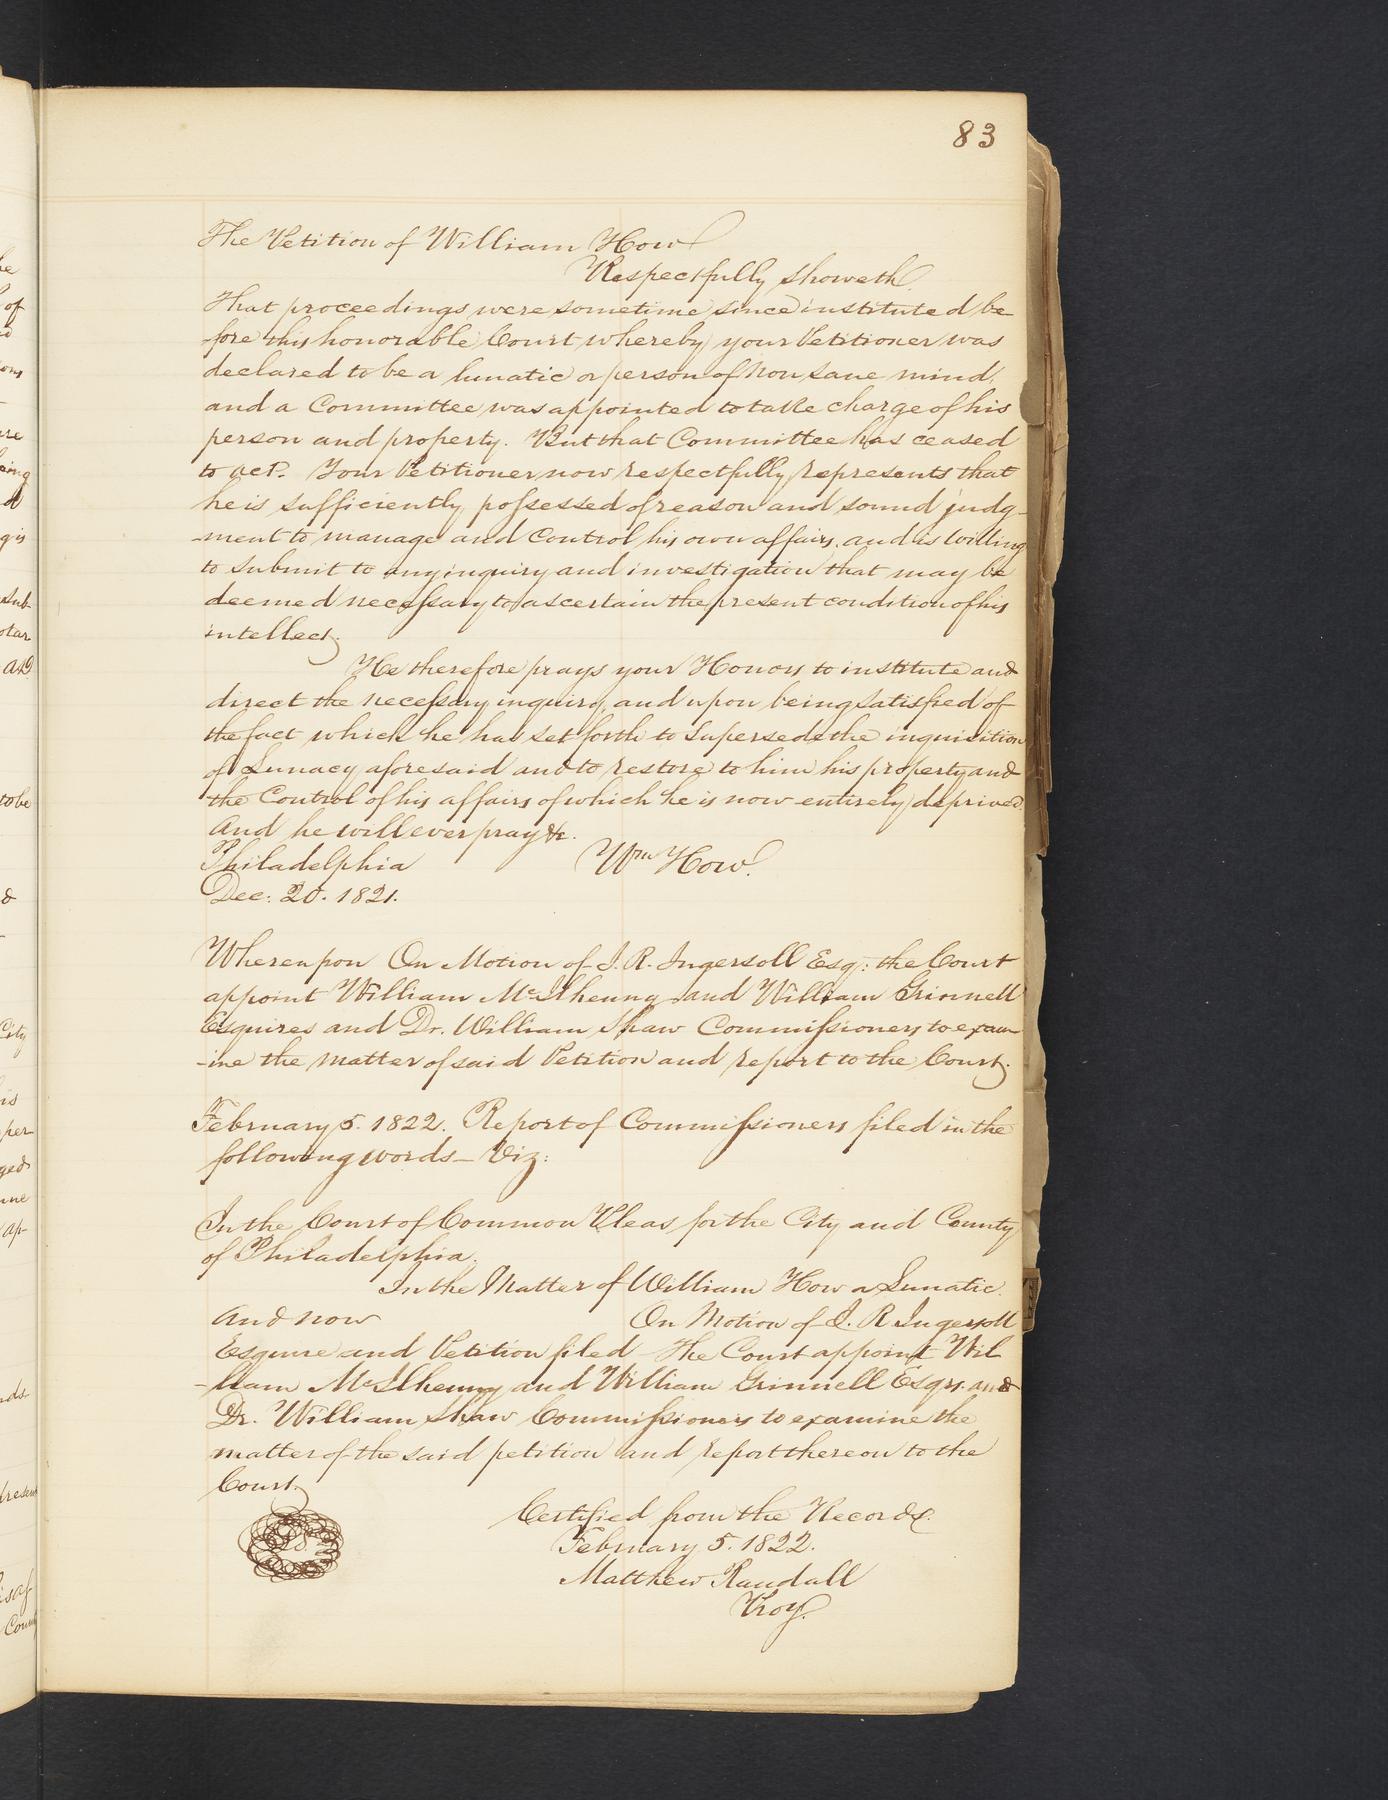 83
The Petition of William How
Respectfully showeth.
That proceedings were sometime since instituted be-
-fore this honorable Court whereby your Petitioner was
declared to be a lunatic or person of Non sane mind,
and a Committee was appointed to take charge of his
person and property. But that Committee has ceased
to act. Your Petitioner now respectfully represents that
he is sufficiently possessed of reason and sound judg-
-ment to manage and Control his own affairs, and is willing
to submit to any inquiry and investigation that may be
deemed necessary to ascertain the present condition of his
intellect.
He therefore prays your Honors to institute and
direct the necessary inquiry, and upon being satisfied of
the fact which he has set forth to Supersede the inquisition
of Lunacy aforesaid and to restore to him his property and
the Control of his affairs of which he is now entirely deprived
And he will ever pray &c.
Philadelphia Wm How.
Dec: 20. 1821.
Whereupon On Motion of J. R. Ingersoll Esq: the Court
appoint William McIlhenny and William Grinnell
Esquires and Dr. William Shaw Commissioners to exam
-ine the matter of said Petition and report to the Court.
February 5. 1822. Report of Commissioners filed in the
following words— Viz:
In the Court of Common Pleas for the City and County
of Philadelphia.
In the Matter of William How a Lunatic.
And now On Motion of J. R Ingersoll
Esquire and Petition filed The Court appoint Wil
-liam McIlhenny and William Grinnell Esqrs. and
Dr. William Shaw Commissioners to examine the
matter of the said petition and report thereon to the
Court.
Certified from the Records.
February 5. 1822.
Matthew Randall
Proy.